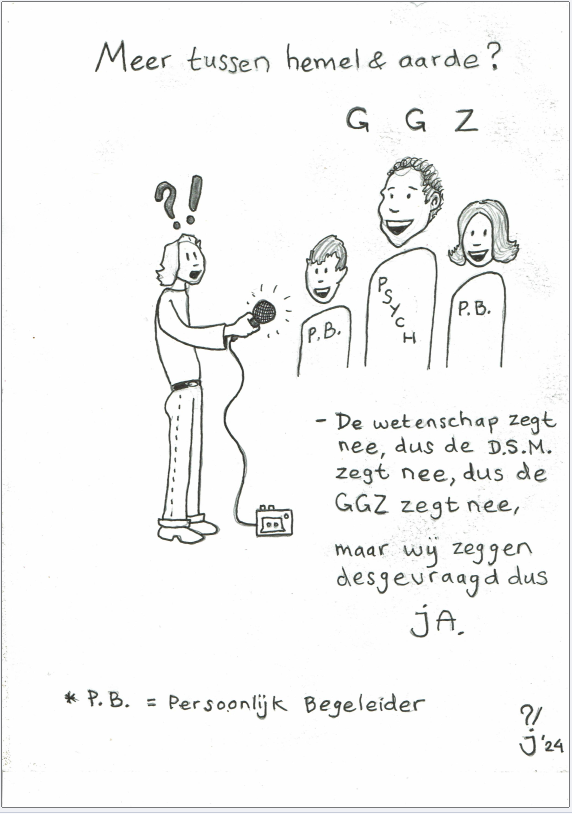 Meer tussen hemel & aarde?
G G Z
?!
P.B.
PSYCH
P.B.
- De wetenschap zegt
nee, dus de D.S.M.
zegt nee, dus de
GGZ zegt nee,
maar wij zeggen
desgevraagd dus
jA.
* P.B. = Persoonlijk Begeleider
?/
j '24